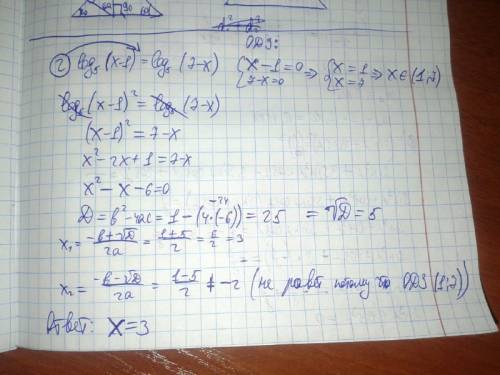 ОДЗ:
2) log₅(x-1) = log₅(7-x) {x-1=0 7-x=0 ⇒ {x=1 x=7 ⇒ x∈(1;7)
log₅(x-1)² = log₅(7-x)
(x-1)² = 7-x
x²-2x+1=7-x
x²-x-6=0
D=b²-4ac=1-(4·(-6))=25 = √D=5
-24
x₁= -b+√D/2a = 1+5/2 = 6/2 = 3
x₂= -b-√D/2a = 1-5/2 ≠ -2 (не равен потому что ОДЗ (1;7))
Ответ: x=3